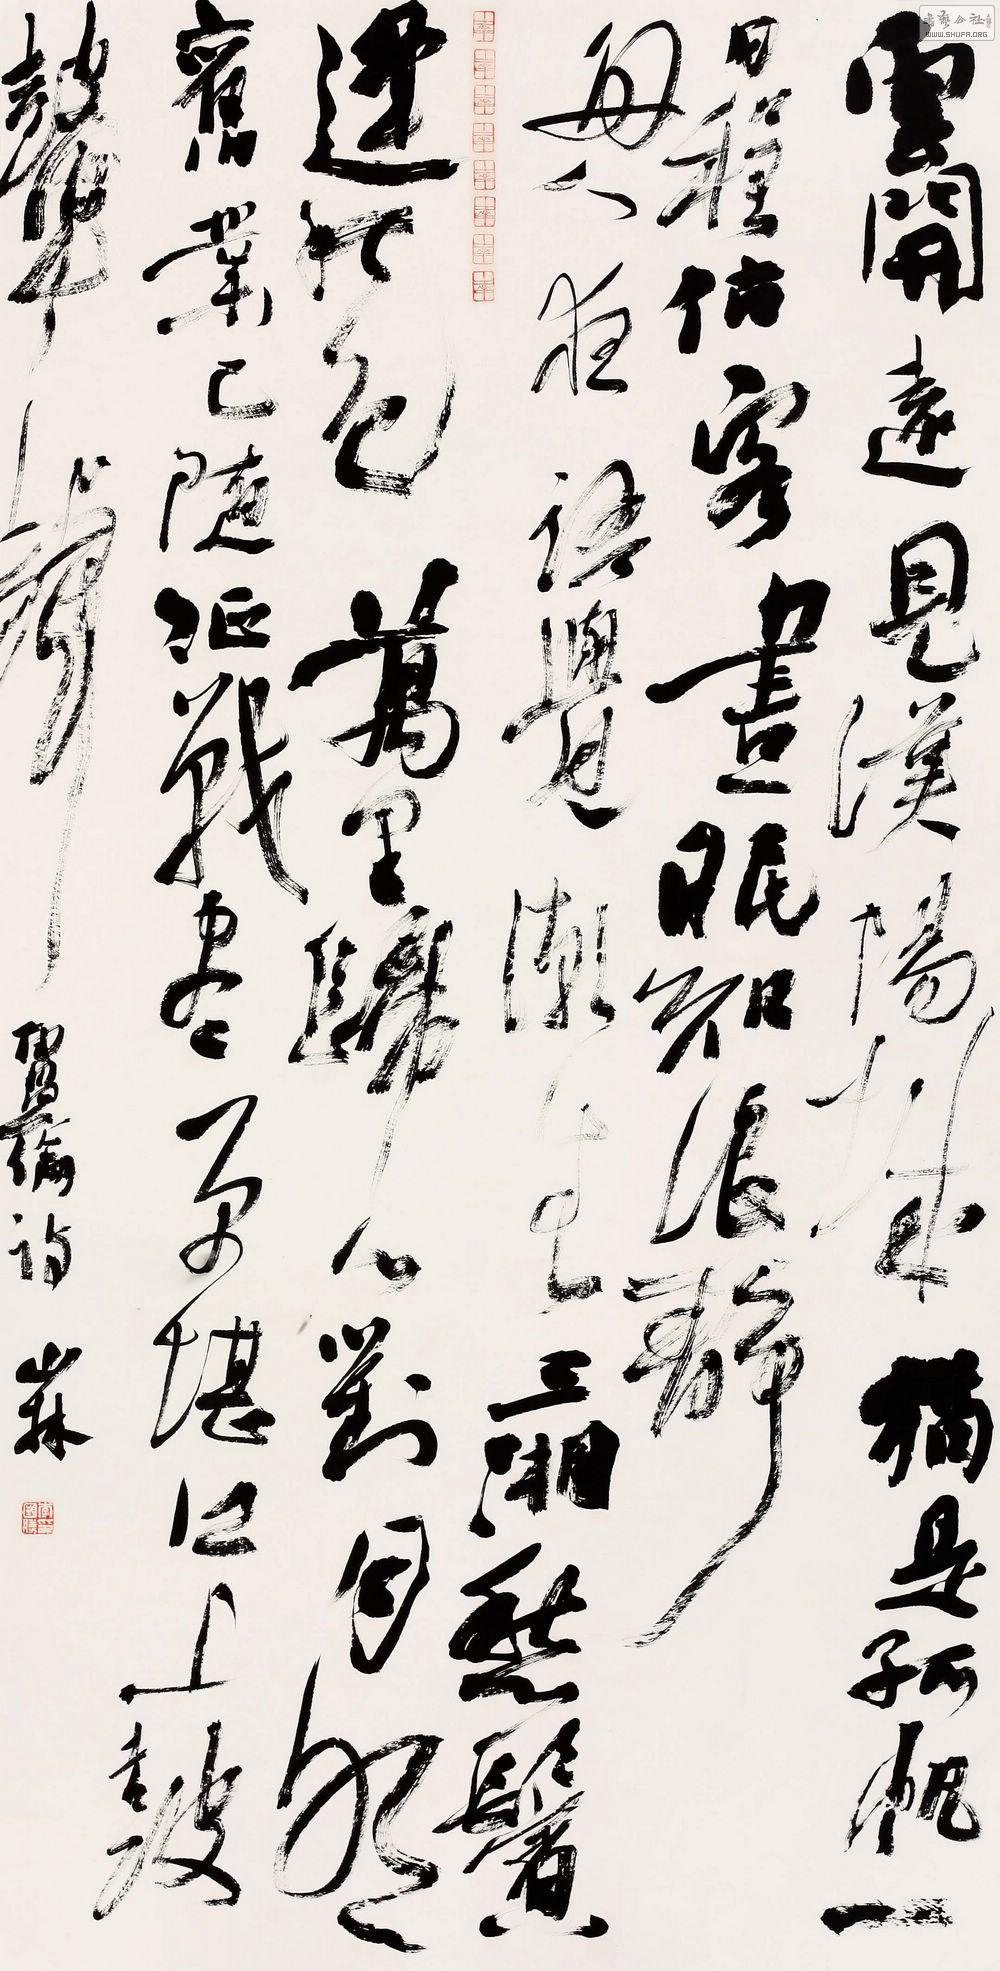 雲開遠見漢陽城猶是孤帆一
日程估客晝眠知浪靜
舟人夜語覺潮生三湘愁鬢
逢秋色萬里歸心對月明
舊業已隨征戰盡更堪江上鼓
鼙聲 盧綸詩
書藝公社
WWW.SHUFA.ORG